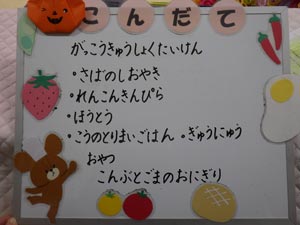 こんだて
がっこうきゅうしょくたいけん
・さばのしおやき
・れんこんきんぴら
・ほうとう
・こうのとりまいごはん ・ぎゅうにゅう
おやつ
こんぶとごまのおにぎり